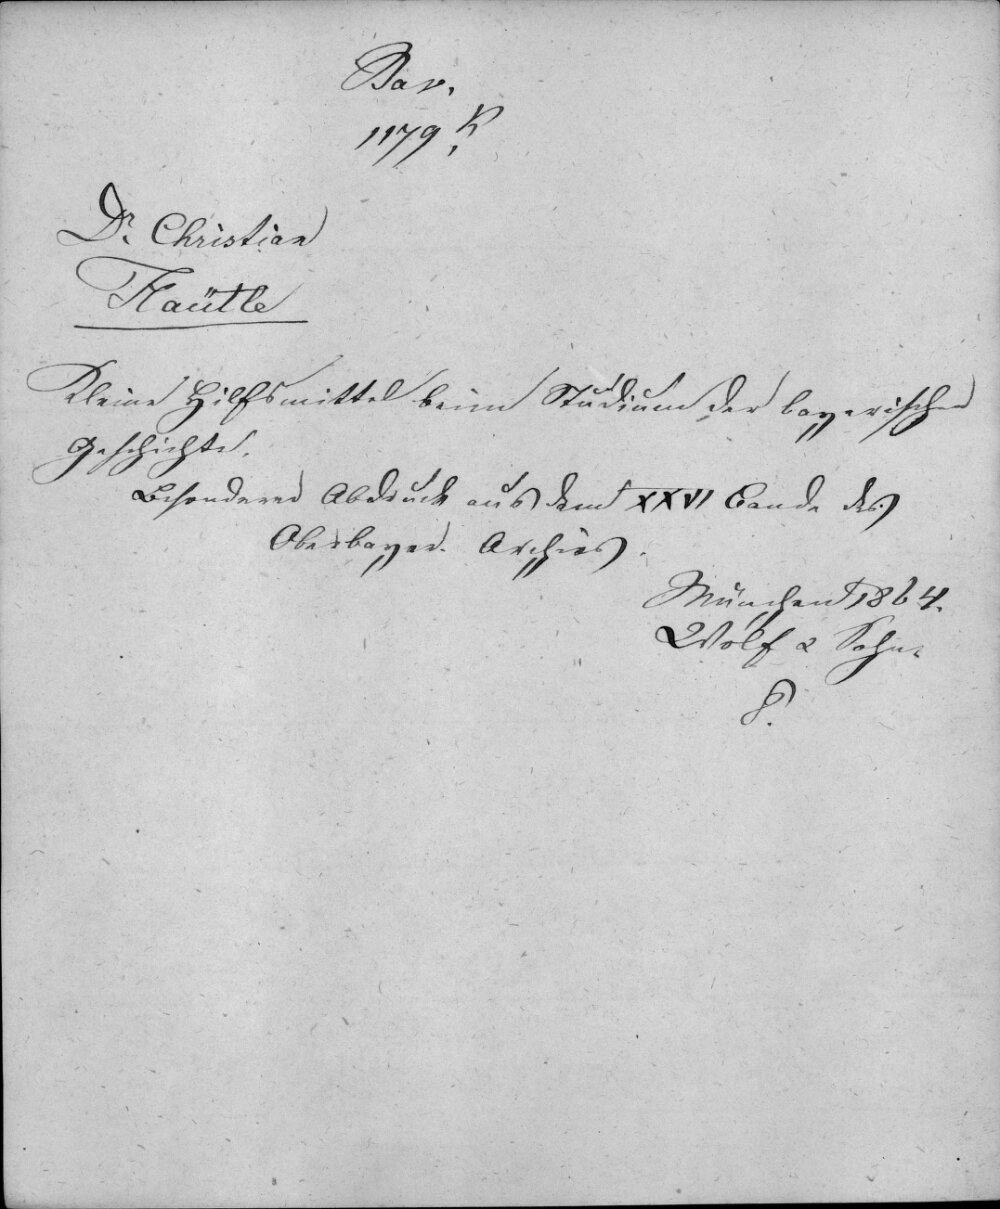 Bav.
1179 k
Dr. Christian
Häutle
Kleine Hilfsmittel beim Studium der bayerischen
Geschichte.
Besonderer Abdruck aus dem XXVI Bande des
Oberbayer. Archivs.
München 1864.
Wolf & Sohn.
8.